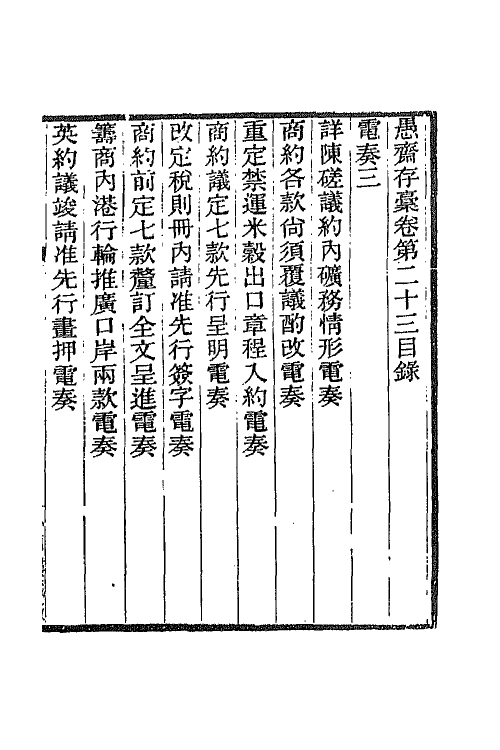 愚齋存稾卷第二十三目錄
電奏三
詳陳磋議約內礦務情形電奏
商約各款尙須覆議酌改電奏
重定禁運米穀出口章程入約電奏
商約議定七款先行呈明電奏
改定稅則冊內請准先行簽字電奏
商約前定七款釐訂全文呈進電奏
籌商內港行輪推廣口岸兩款電奏
英約議竣請准先行畫押電奏